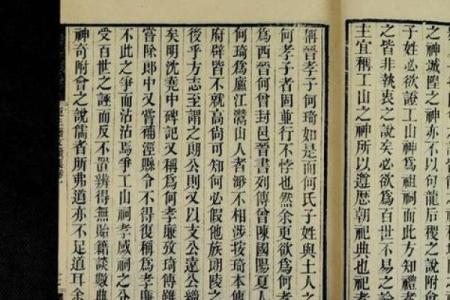 之神滅隍之神亦不以句龍后稷之說附
子姓必欲證工山爲祖祠而此方知禮者
之皆非執衷之說矣必欲爲百世不易之論
主宜稱工山之神所以遵歷朝祀典也祀者
稱晉孝子何琦如是而何氏子姓與土人之
何孝子者固並行不悖也然余更欲爲何
爲西晉何曾封邑晉書列傳曾陳國陽夏人
何琦爲廬江灊山人者渺不相涉按琦本傳
府辟皆不就高尚可知何必假他族朗陵之
後乎方志至謂之朗公則又以支公遠公續
矣明沈堯中碑記又稱爲何孝廉攷琦傳雖
嘗除郎中又嘗補涇縣令不得復稱爲孝廉
不此之爭而沾沾焉爭工山祠孝感祠之分
受百世之誣而反不置辨得無貽籍談數典
神奇附會之說儒者所弗道亦不足道耳余